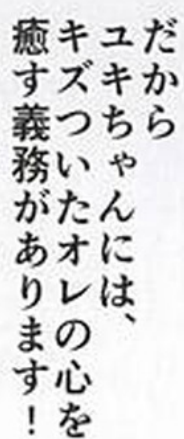 だから
ユキちゃんには、
キズついたオレの心を
癒す義務があります！